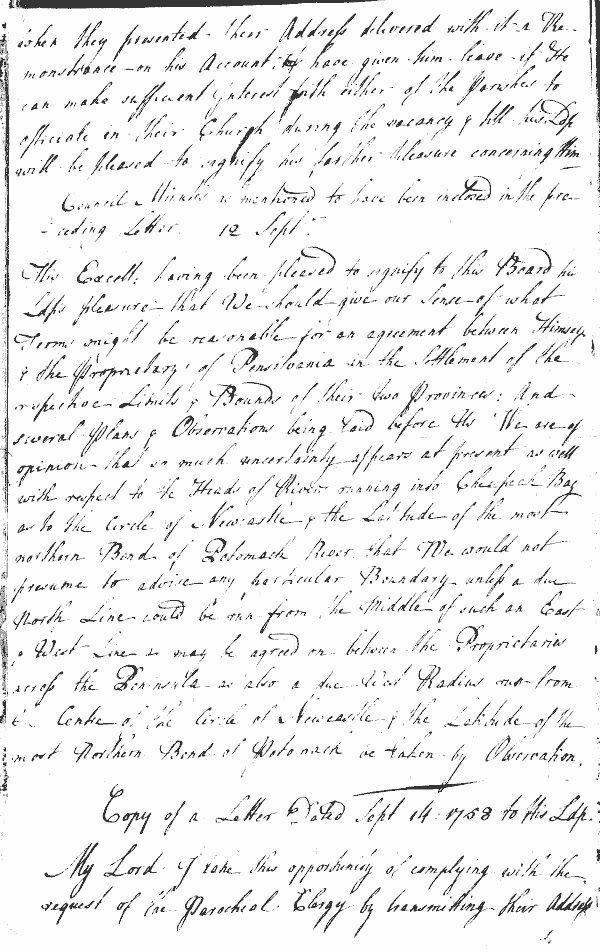 when they presented their Address delivered with it a Re-
monstrance on his Account: have given him leave if He
can make sufficient Interest with either of the Parishes to
officiate in their Church during the vacancy & till his Ldp
will be pleased to signify his farther Pleasure concerning Him
Council Minutes as mentioned to have been inclosed in the pre-
ceding Letter. 12 Sept.
His Excell: having been pleased to signify to this Board his
Ldps pleasure that We should give our Sense of what
Terms might be reasonable for an agreement between Himself
& the Proprietarys of Pensilvania in the Settlement of the
respective Limits & Bounds of their two Provinces: And
several Plans & Observations being laid before Us We are of
opinion that so much uncertainty appears at present as well
with respect to the Heads of Rivers running into Chesapeek Bay
as to the Circle of Newcastle & the Latitude of the most
northern Bend of Potomack River that We would not
presume to advise any particular Boundary unless a due
North Line could be run from the Middle of such an East
& West Line as may be agreed on between the Proprietaries
across the Peninsula as also a due West Radius run from
the Centre of the Circle of Newcastle & the Latitude of the
most Northern Bend of Potomack be taken by Observation.
Copy of a Letter Dated Sept 14 1753 to His Ldp.
My Lord I take this opportunity of complying with the
request of the Parochial Clergy by transmitting their Address